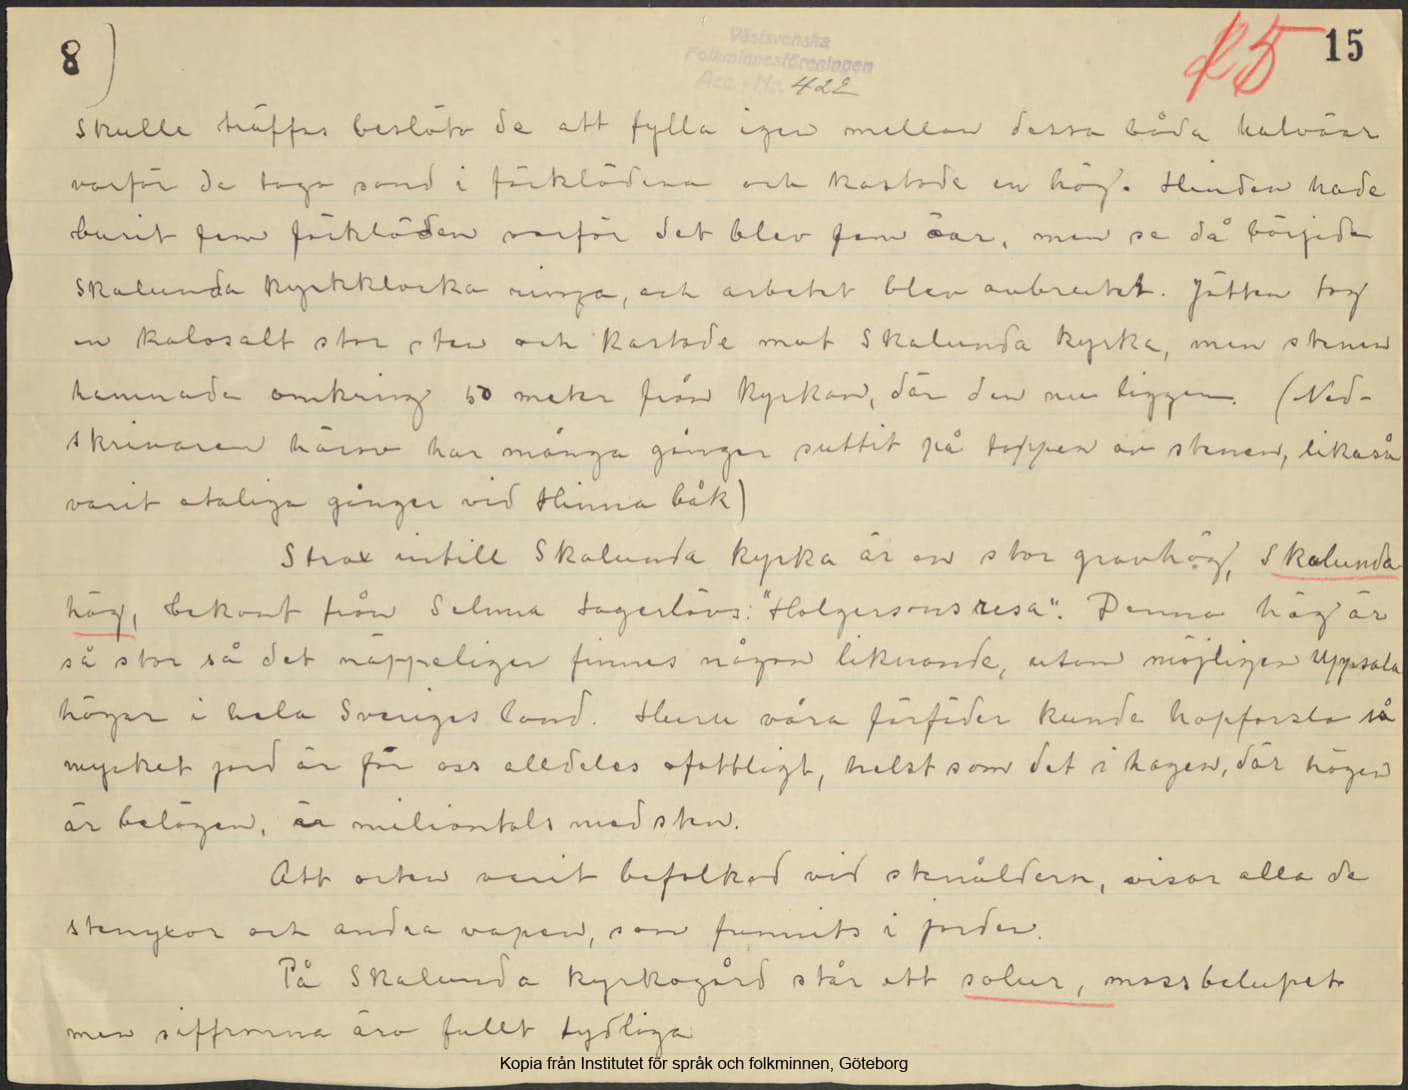 8)
Västsvenska
Folkminnesföreningen
Acc. - Nr. 422
25
15
skulle träffas beslöto de att fylla igen mellan dessa båda halvöar
varför de togo sand i förklädena och kastade en hög. Hindan hade
burit fem förkläden varför det blev fem öar, men se då började
Skalunda kyrkklocka ringa, och arbetet blev avbrutet. Jätten tog
en kolosalt stor sten och kastade mot Skalunda kyrka, men stenen
hamnade omkring 50 meter från kyrkan, där den nu ligger. (Ned-
skrivaren härav har många gånger suttit på toppen av stenen, likaså
varit otaliga gånger vid Hinna båk)
Strax intill Skalunda kyrka är en stor gravhög, Skalunda
hög, bekant från Selma Lagerlövs: "Holgersons resa". Denna hög är
så stor så det näppeligen finnes någon liknande, utom möjligen Uppsala
högar i hela Sveriges land. Huru våra förfäder kunde hopforsla så
mycket jord är för oss alldeles ofattligt, helst som det i hagen, där högen
är belägen, är miliontals med sten.
Att orten varit befolkad vid stenåldern, visar alla de
stenyxor och andra vapen, som funnits i jorden.
På Skalunda kyrkogård står ett solur, mossbelupet
men siffrorna äro fullt tydliga
Kopia från Institutet för språk och folkminnen, Göteborg